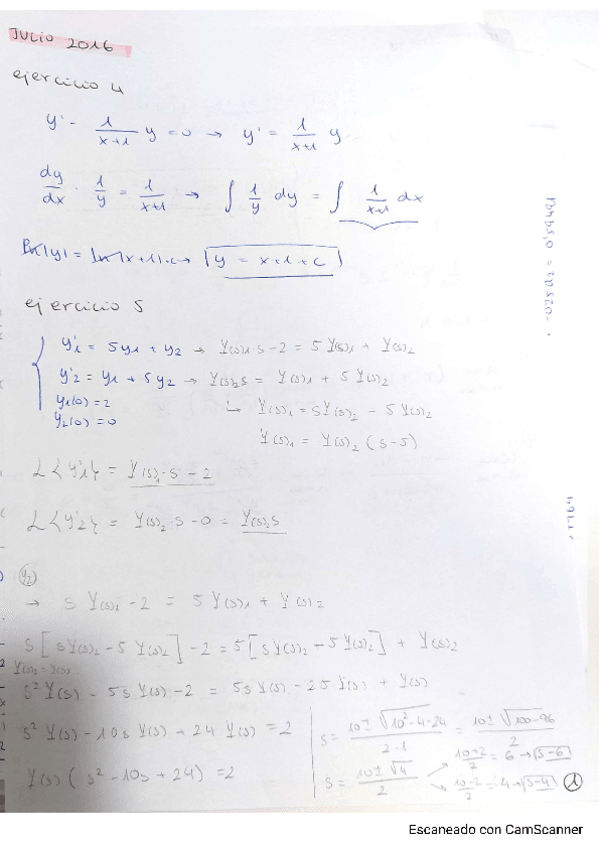 JULIO 2016
ejercicio 4
y' - 1/(x+1) y = 0 → y' = 1/(x+1) y
dy/dx · 1/y = 1/(x+1) → ∫ 1/y dy = ∫ 1/(x+1) dx
ln|y| = ln|x+1|+c → y = x+1+c
ejercicio 5
y'1 = 5y1 + y2 → Y(s)1·s - 2 = 5Y(s)1 + Y(s)2
y'2 = y1 + 5y2 → Y(s)2s = Y(s)1 + 5Y(s)2
y1(0) = 2
↳ Y(s)1 = sY(s)2 - 5Y(s)2
y2(0) = 0
Y(s)1 = Y(s)2 (s-5)
L{y'1} = Y(s)1·s - 2
L{y'2} = Y(s)2 s - 0 = Y(s)2s
y2)
→ s Y(s)1 - 2 = 5Y(s)1 + Y(s)2
s[sY(s)2 - 5Y(s)2] - 2 = 5[sY(s)2 - 5Y(s)2] + Y(s)2
Y(s)2 = Y(s)
s²Y(s) - 5sY(s) - 2 = 5sY(s) - 25Y(s) + Y(s)
s²Y(s) - 10sY(s) + 24Y(s) = 2
Y(s)(s² - 10s + 24) = 2
s = (10 ± √(10²-4·24))/(2·1) = (10 ± √(100-96))/2
s = (10 ± √4)/2
(10+2)/2 = 6 → s-6
(10-2)/2 = 4 → s-4
1
Escaneado con CamScanner